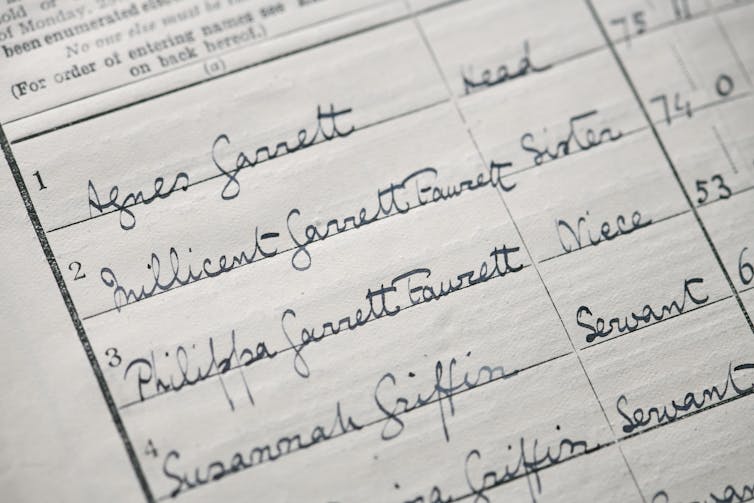 of Monday, 2
been enumerated else
No one else must be
(For order of entering names see
on back hereof.)
(a)
1 Agnes Garrett Head 75 11
2 Millicent Garrett Fawcett Sister 74 0
3 Philippa Garrett Fawcett Niece 53
4 Susannah Griffin Servant 6
Griffin Servant